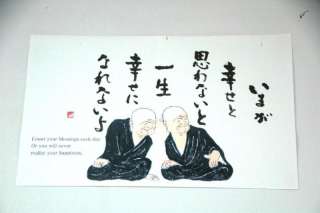 いまが
幸せと
思わないと
一生
幸せに
なれないよ
Count your blessings each day
Or you will never
realize your happiness.